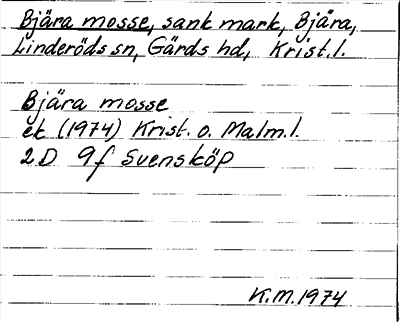 Bjära mosse, sank mark, Bjära,
Linderöds sn, Gärds hd, Krist.l.
Bjära mosse
ek (1974) Krist. o. Malm.l.
2D 9f Svensköp
K.M.1974